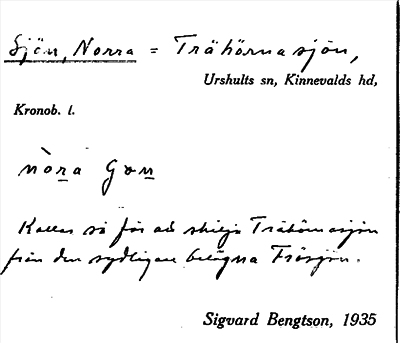 Sjön, Norra = Trähörnasjön,
Urshults sn, Kinnevalds hd,
Kronob. l.
nòra
Kallas så för att skilja Trähörnasjön
från den sydligare belägna Frösjön.
Sigvard Bengtson, 1935